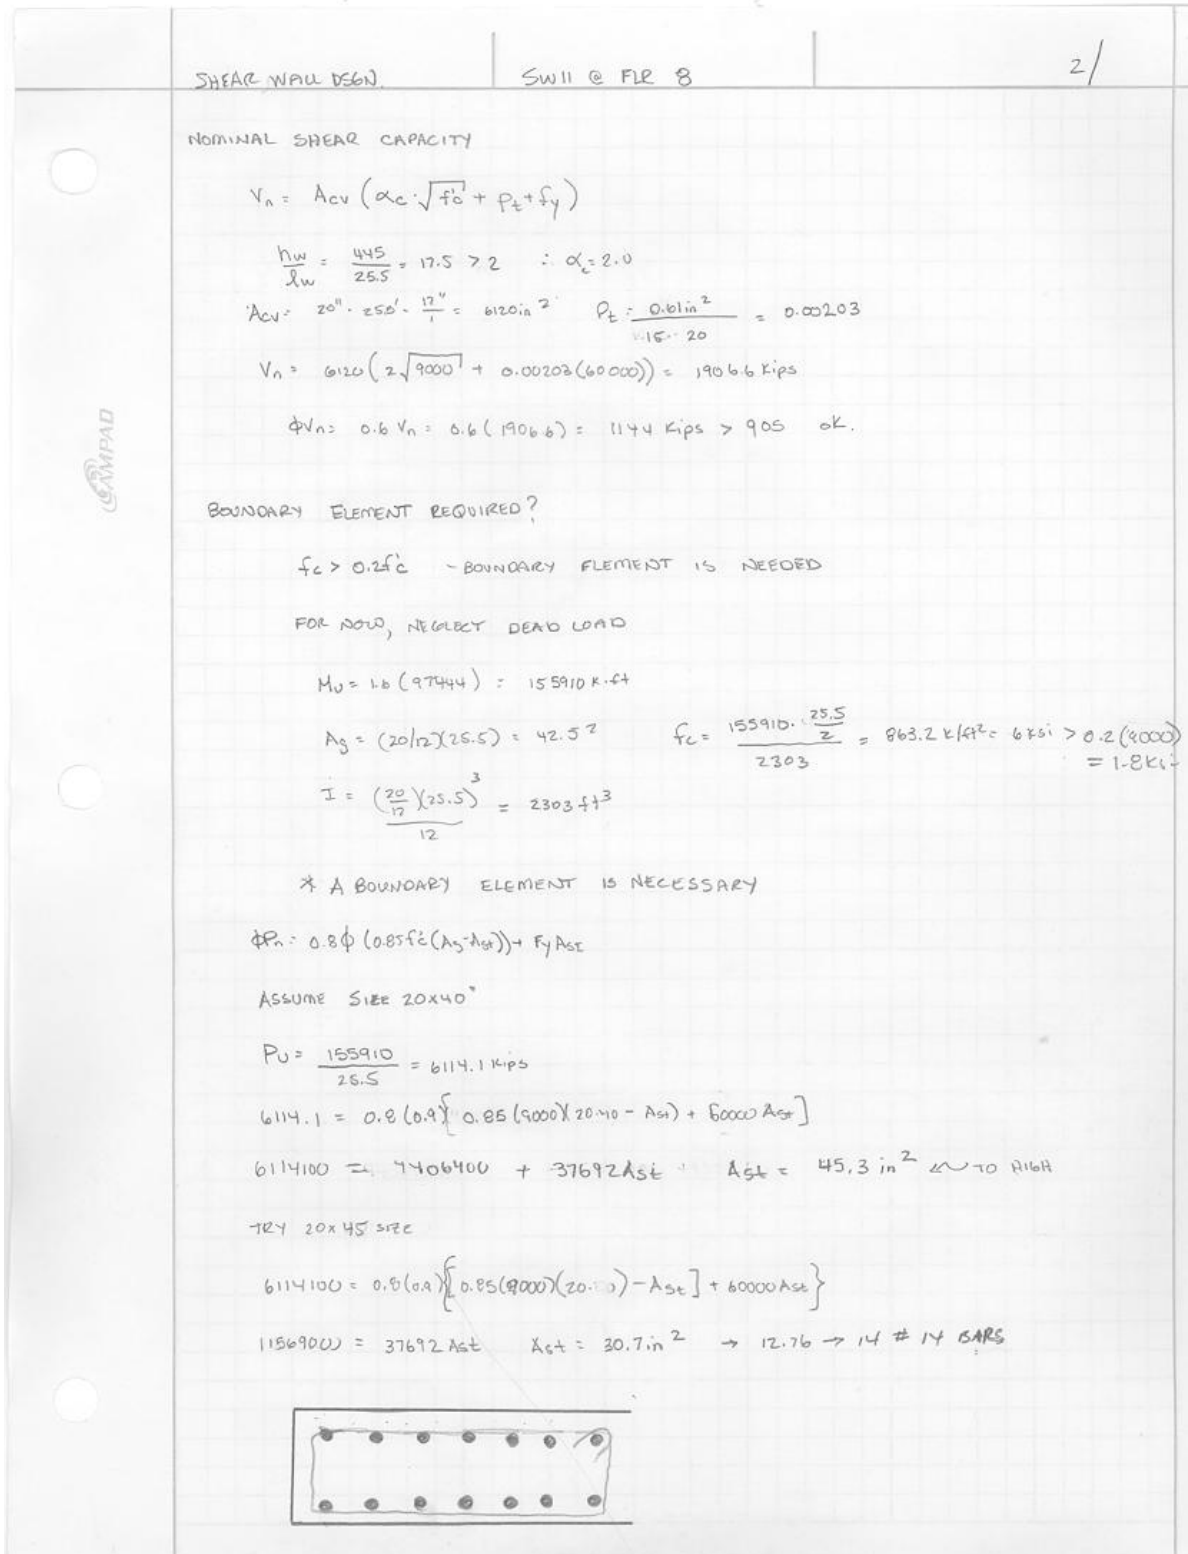 SHEAR WALL DSGN. SW11 @ FLR 8 2/
NOMINAL SHEAR CAPACITY
Vn = Acv (αc·√f'c + ρt + fy)
hw/lw = 445/25.5 = 17.5 > 2 ∴ αc = 2.0
Acv = 20" · 25.5' · 12"/1 = 6120 in² ρt = 0.61in²/15·20 = 0.00203
Vn = 6120(2√9000 + 0.00203(60000)) = 1906.6 Kips
ϕVn = 0.6 Vn = 0.6(1906.6) = 1144 Kips > 905 OK.
AMPAD
BOUNDARY ELEMENT REQUIRED?
fc > 0.2f'c - BOUNDARY ELEMENT IS NEEDED
FOR NOW, NEGLECT DEAD LOAD
Mu = 1.6 (97444) = 155910 K·ft
Ag = (20/12)(25.5) = 42.5² fc = 155910·25.5/2 / 2303 = 863.2 k/ft² = 6 ksi > 0.2(9000)
= 1.8Ksi
I = (20/12)(25.5)³/12 = 2303 ft³
* A BOUNDARY ELEMENT IS NECESSARY
ϕPn = 0.8ϕ (0.85f'c(Ag-Ast)) + Fy Ast
ASSUME SIZE 20x40"
Pu = 155910/25.5 = 6114.1 Kips
6114.1 = 0.8(0.9){0.85(9000)(20·40 - Ast) + 60000 Ast]
6114100 = 4406400 + 37692Ast Ast = 45.3 in² TO HIGH
TRY 20x45 SIZE
6114100 = 0.8(0.9){[0.85(9000)(20· ) - Ast] + 60000Ast}
1156900 = 37692 Ast Ast = 30.7in² → 12.76 → 14 # 14 BARS